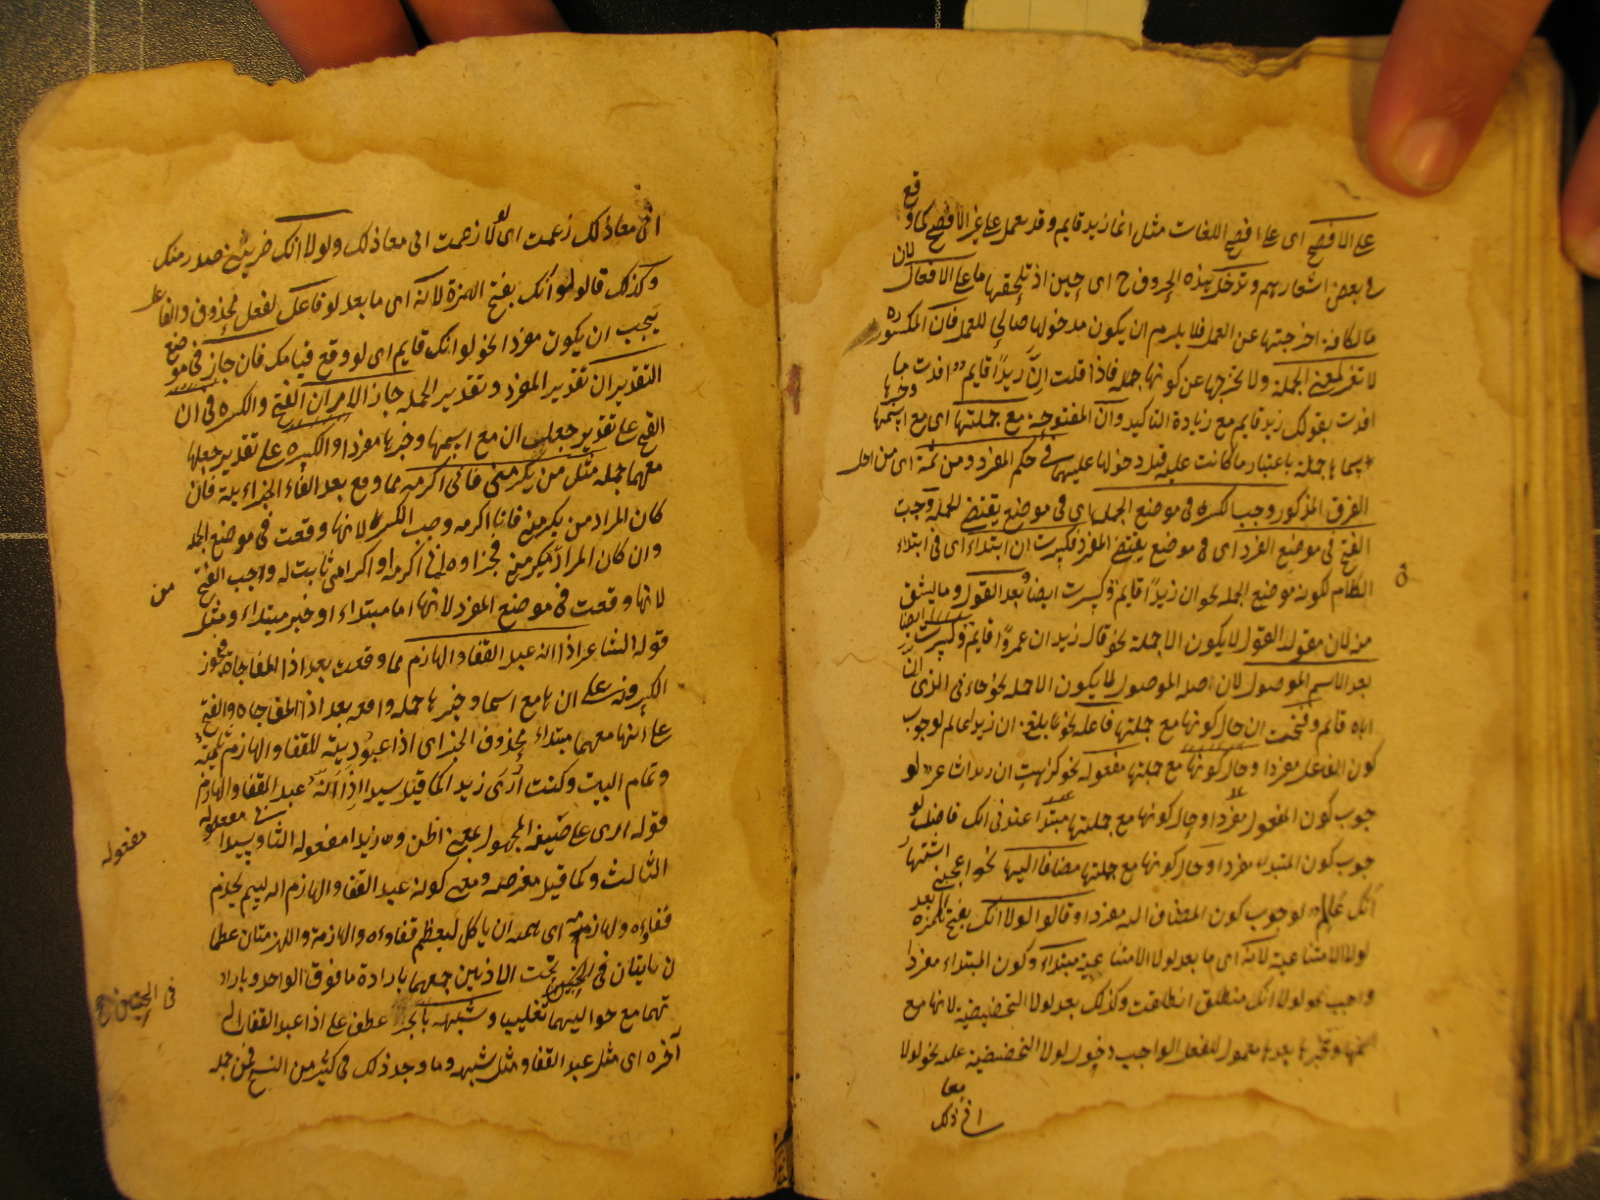 على الافصح اى على افصح اللغات مثل انما زيد قايم وقد تعمل على غير الافصح كما وقع
فى بعض اشعارهم وتدخل هذه الحروف ح اى حين اذ تلحقها ما على الافعال لان
ما الكافة اخرجتها عن العمل فلا يلزم ان يكون مدخولها صالحا للعمل فان المكسوره
لا تغير معنى الجملة ولا تخرجها عن كونها جملة فاذا قلت انّ زيدًا قايم افدت ما
افدت بقولك زيد قايم مع زيادة التاكيد وانّ المفتوحة مع جملتها اى مع اسمها وخبرها
جملة باعتبار ما كانت عليه قبل دخولها عليهما فى حكم المفرد ومن ثمة اى من اجل
الفرق المذكور وجب الكسر فى موضع الجمل اى فى موضع يقتضى الجملة ووجب
الفتح فى موضع المفرد اى فى موضع يقتضى المفرد فكسرت ان ابتداء اى فى ابتداء
الكلام لكونه موضع الجملة نحو ان زيدًا قايم وكسرت ايضا بعد القول وما يشتق
منه لان مقولة القول لا يكون الا جملة نحو قال زيد ان عمروًا قايم وكسرت ايضا
بعد الاسم الموصول لان صلة الموصول لا يكون الا جملة نحو جاءنى الذى ان
اباه قايم وفتحت ان حال كونها مع جملتها فاعلة نحو بلغنى ان زيدا عالم لوجوب
كون الفاعل مفردا وحال كونها مع جملتها مفعولة نحو كرهت ان زيدا شاعر لو
جوب كون المفعول مفردا وحال كونها مع جملتها مبتدأ عندى انك فاضل لو
جوب كون المبتداء مفردا وحال كونها مع جملتها مضافا اليها نحو اعجبنى اشتهار
انك عالم لوجوب كون المضاف اليه مفردا وقالوا لولا انك بفتح الهمزة بعد
لولا الامتناعية لانه اى ما بعد لولا الامتناعية مبتداء وكون المبتداء مفردا
واجب نحو لولا انك منطلق انطلقت وكذلك بعد لولا التحضيضية لانها مع
اسمها وخبرها بعدها معمول للفعل الواجب دخول لولا التحضيضية عليه نحو لولا
انى معاذ لك زعمت اى لولا زعمت انى معاذ لك ولولا انك ضربتنى صدر منك
وكذلك قالوا لو انك بفتح الهمزة لانه اى ما بعد لو فاعل لفعل محذوف والفاعل
يجب ان يكون مفردا نحو لو انك قايم اى لو وقع قيامك فان جاز فى موضع
التقديران تقدير المفرد وتقدير الجملة جاز الامران الفتح والكسر فى ان
الفتح على تقدير جعل ان مع اسمها وخبرها مفردا والكسر على تقدير جعلها
معهما جملة مثل من يكرمنى فانى اكرمه مما وقع بعد الفاء الجزائية فان
كان المراد من يكرمنى فانا اكرمه وجب الكسر لانها وقعت فى موضع الجملة
وان كان المراد من يكرمنى فجزاوه انى اكرمه او اكرامى ثابت له وجب الفتح
لانها وقعت فى موضع المفرد لانها اما مبتداء او خبر مبتداء ومثل
قوله الشاعر اذا انه عبد القفا واللهازم مما وقعت بعد اذا المفاجاة فيجوز
الكسر فيه على ان ها مع اسمها وخبرها جملة واقعه بعد اذا المفاجاه والفتح
على أنها معهما مبتداء محذوف الخبر اى اذا عبوديته للقفا واللهازم ثابتة
وتمام البيت وكنت أُرَى زيد اكما قيل سيدا اذا انه عبد القفا واللهازم
قوله ارى على صيغة المجهول بمعنى اظن و زيدا مفعوله الثانى وسيدا
مفعوله
الثالث وكما قيل معترضه ومعنى كونه عبد القفا واللهازم انه لييم يخدم
قفاءه ولهازمه اى همه ان ياكل ليعظم قفاوه ولهازمة واللهزمتان عظما
ن نايتان فى اللحيين تحت الاذنين جمعهما بارادة ما فوق الواحد وباراد
فى اللحيين
تهما مع حواليهما تغليبا وشبهه بالجر عطف على اذا عبد القفا الى
آخره اى مثل عبد القفا ومثل شبهه وما وجد ذلك فى كثير من النسخ فمن جملة